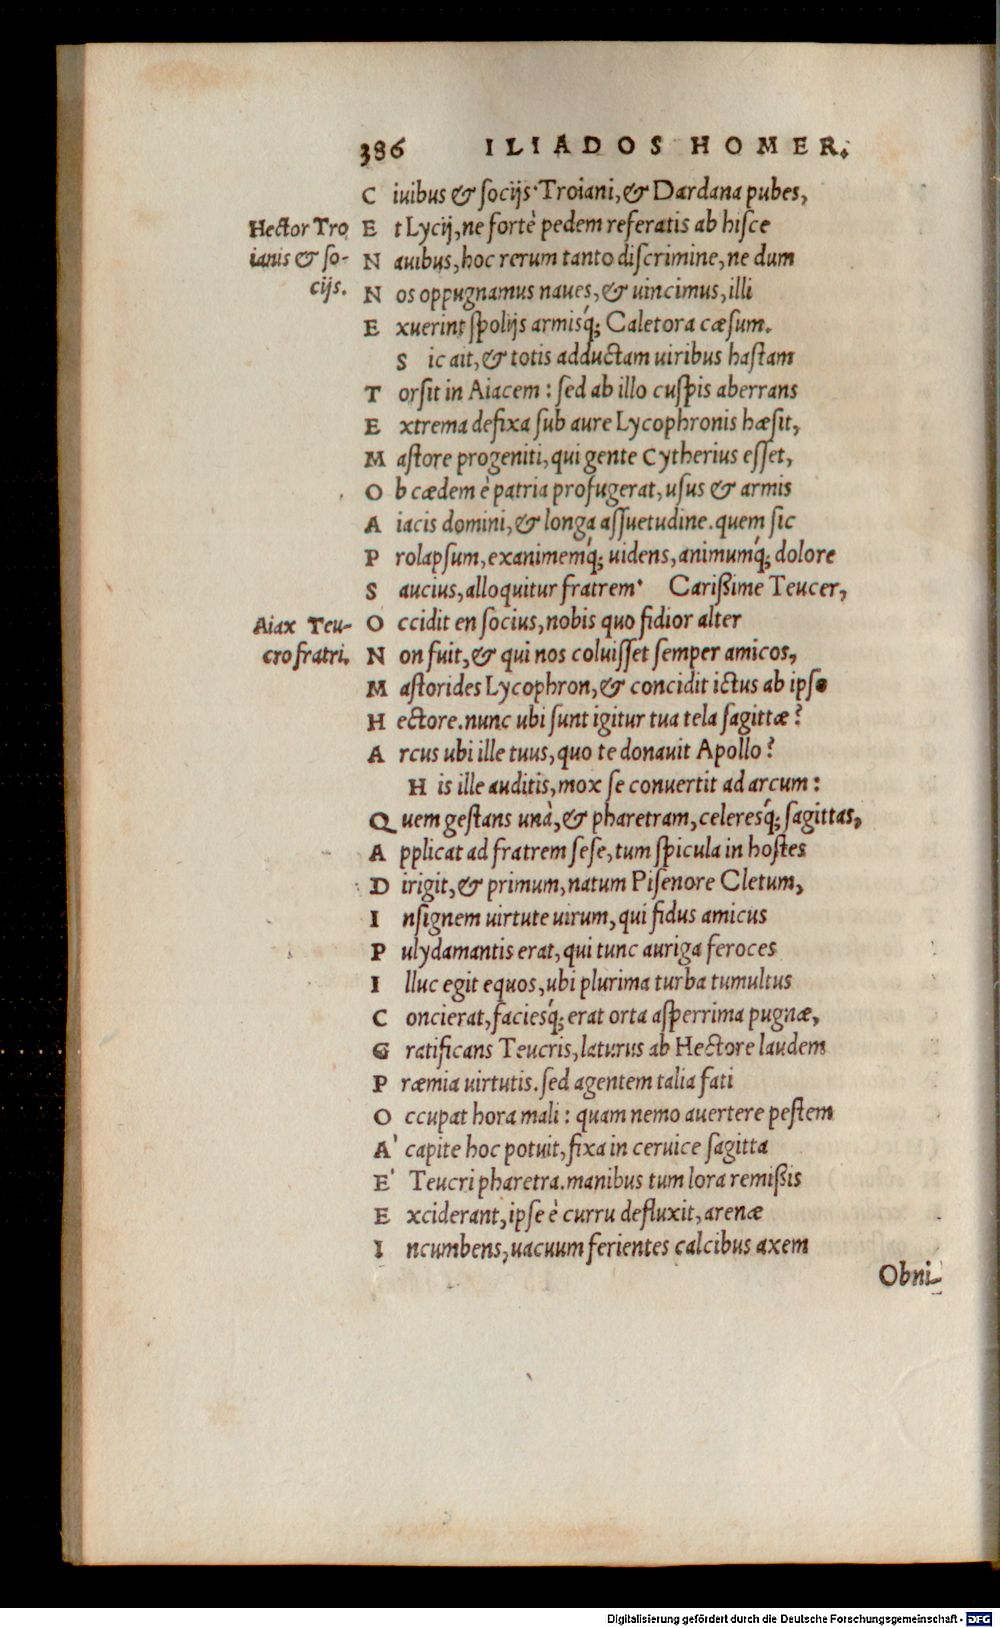 386 ILIADOS HOMER.
Civibus & socijs· Troiani, & Dardana pubes,
Et Lycij, ne fortè pedem referatis ab hisce
Navibus, hoc rerum tanto discrimine, ne dum
Nos oppugnamus naves, & vincimus, illi
Exuerint spolijs armisq́; Caletora cæsum.
Sic ait, & totis adductam viribus hastam
Torsit in Aiacem: sed ab illo cuspis aberrans
Extrema defixa sub aure Lycophronis hæsit,
Mastore progeniti, qui gente Cytherius esset,
Ob cædem è patria profugerat, usus & armis
Aiacis domini, & longa assuetudine. quem sic
Prolapsum, exanimemq́; videns, animumq́; dolore
Saucius, alloquitur fratrem· Carißime Teucer,
Occidit en socius, nobis quo fidior alter
Non fuit, & qui nos coluisset semper amicos,
Mastorides Lycophron, & concidit ictus ab ipso
Hectore. nunc ubi sunt igitur tua tela sagittæ?
Arcus ubi ille tuus, quo te donavit Apollo?
His ille auditis, mox se convertit ad arcum:
Quem gestans unà, & pharetram, celeresq́; sagittas,
Applicat ad fratrem sese, tum spicula in hostes
Dirigit, & primum, natum Pisenore Cletum,
Insignem virtute virum, qui fidus amicus
Pulydamantis erat, qui tunc auriga feroces
Illuc egit equos, ubi plurima turba tumultus
Concierat, faciesq́; erat orta asperrima pugnæ,
Gratificans Teucris, laturus ab Hectore laudem
Præmia virtutis. sed agentem talia fati
Occupat hora mali: quam nemo avertere pestem
A' capite hoc potuit, fixa in cervice sagitta
E' Teucri pharetra. manibus tum lora remißis
Exciderant, ipse è curru defluxit, arenæ
Incumbens, vacuum ferientes calcibus axem
Obni-
Hector Tro
ianis & so-
cijs.
Aiax Teu-
cro fratri.
Digitalisierung gefördert durch die Deutsche Forschungsgemeinschaft - DFG